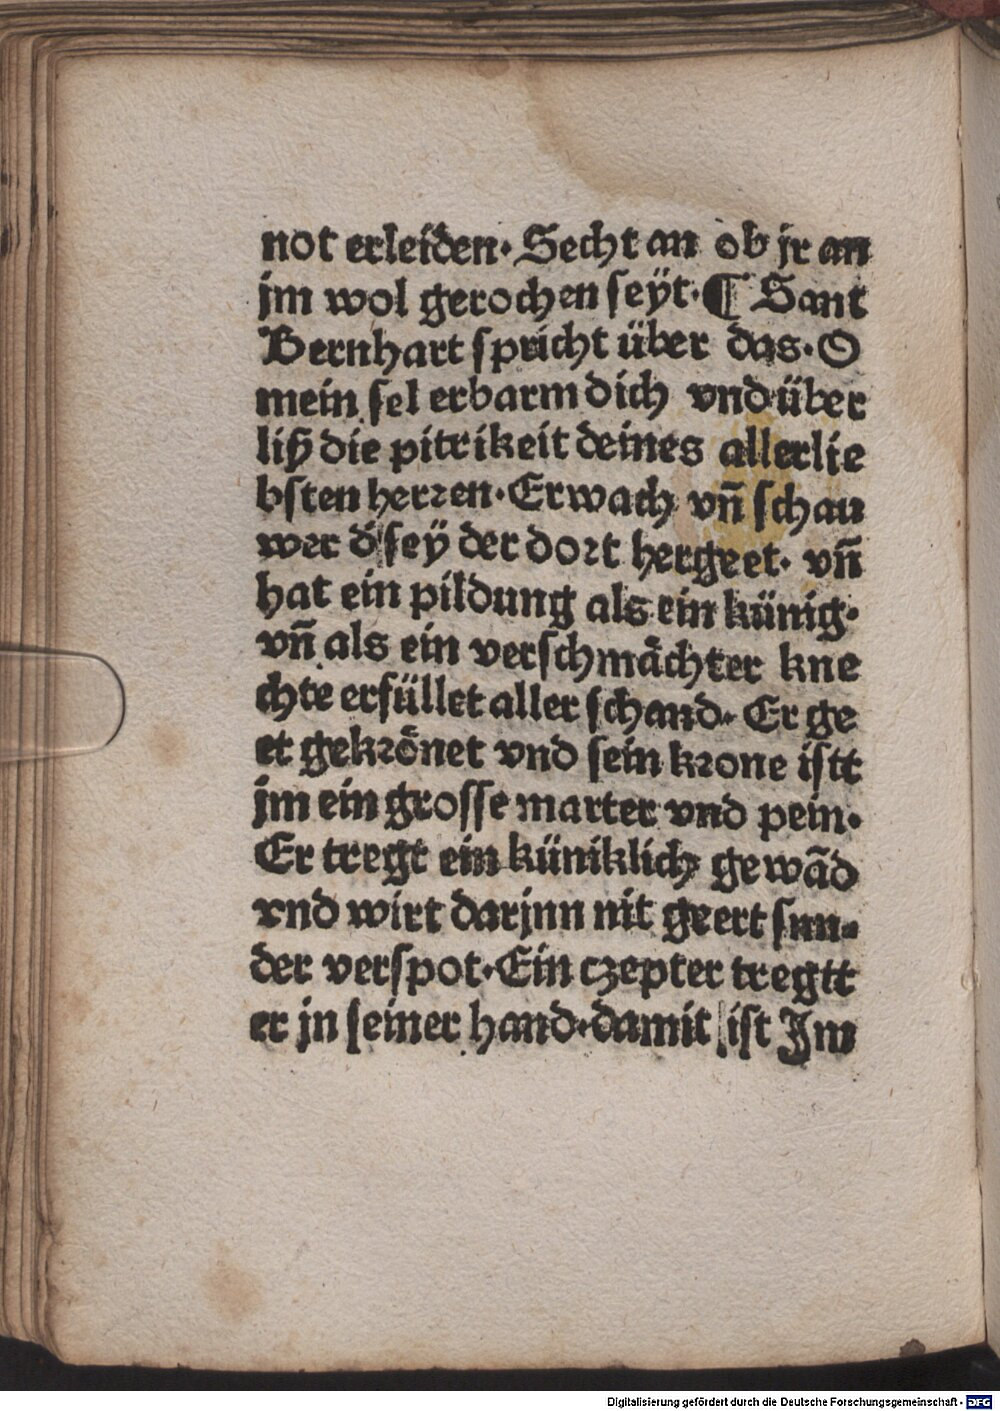 not erleiden· Secht an ob jr an
jm wol gerochen seÿt· ¶ Sant
Bernhart spricht über das· O
mein sel erbarm dich vnd über
liß die pitrikeit deines allerlie
bsten herꝛen· Erwach vn̄ schau
wer d' sey der doꝛt hergeet· vn̄
hat ein pildung als ein künig·
vn̄ als ein verschmächter kne
chte erfüllet aller schand· Er ge
et gekꝛönet vnd sein kꝛone istt
jm ein grosse marter vnd pein·
Er tregt ein küniklich gewād
vnd wirt darjnn nit geert sun-
der verspot· Ein czepter tregtt
er jn seiner hand· damit ist Jm
Digitalisierung gefördert durch die Deutsche Forschungsgemeinschaft - DFG